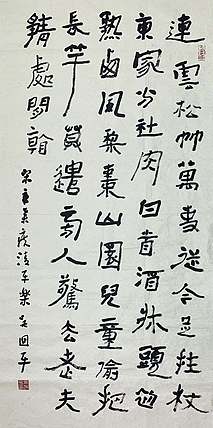 連雲松竹萬事從今足拄杖
東家分社肉白酒牀頭初
熟西風梨棗山園兒童偷把
長竿莫遣旁人驚去老夫
靜處閒看
宋辛棄疾清平樂